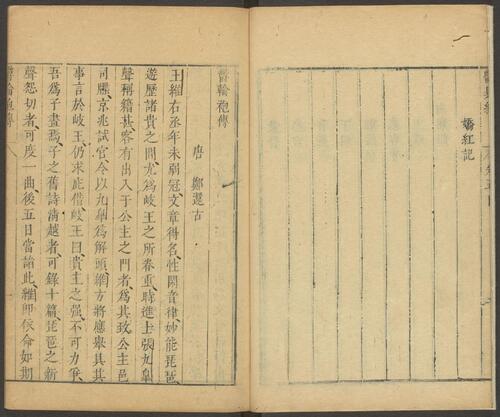 嬌紅記
鬱輪袍傳
唐 鄭還古
王維右丞年未弱冠文章得名性閑音律妙能琵琶
遊歷諸貴之間尤爲岐王之所眷重時進士張九皐
聲稱籍甚客有出入于公主之門者爲其致公主邑
司牒京兆試官令以九皐爲解頭維方將應舉具其
事言於岐王仍求庇借岐王曰貴主之强不可力爭
吾爲子畫焉子之舊詩清越者可錄十篇琵琶之新
聲怨切者可度一曲後五日當詣此維即依命如期
鬱輪袍傳